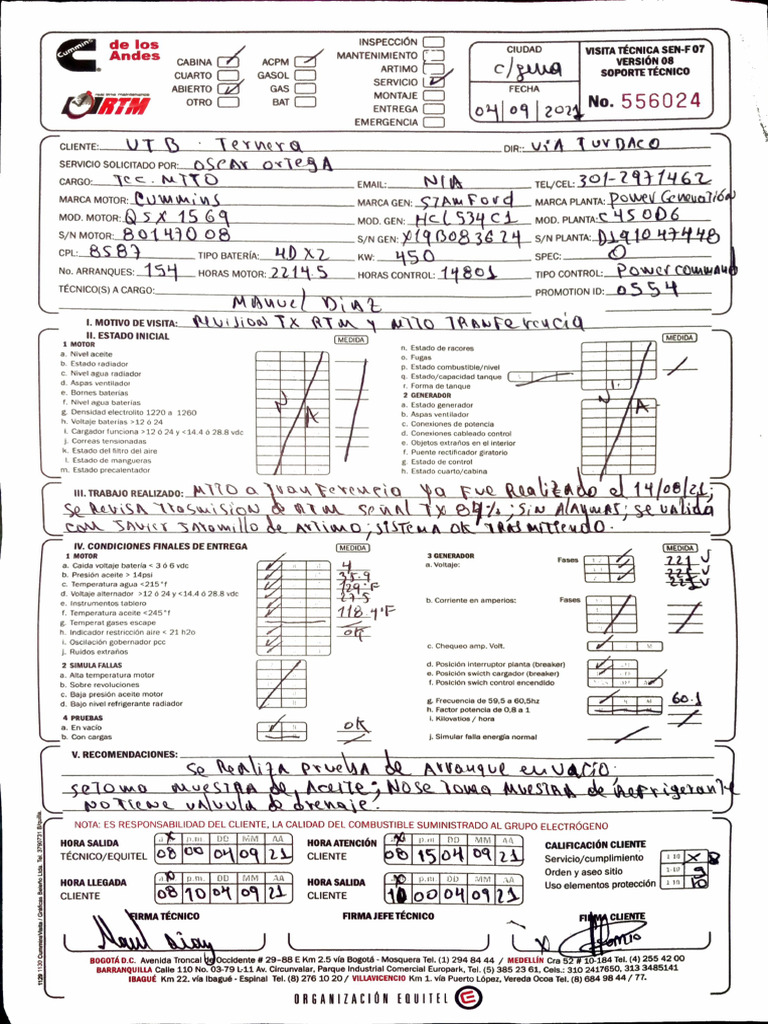 Cummins
de los Andes
RTM
CABINA
CUARTO
ABIERTO
OTRO
ACPM
GASOL
GAS
BAT
INSPECCIÓN
MANTENIMIENTO
ARTIMO
SERVICIO
MONTAJE
ENTREGA
EMERGENCIA
CIUDAD
C/gena
FECHA
04/09/2021
VISITA TÉCNICA SEN-F 07
VERSIÓN 08
SOPORTE TÉCNICO
No. 556024
CLIENTE: UTB. Ternera DIR: Via TURBACO
SERVICIO SOLICITADO POR: OSCAR Ortega
CARGO: Tec. MTTO EMAIL: N/A TEL/CEL: 301-2971462
MARCA MOTOR: Cummins MARCA GEN: STAMFORD MARCA PLANTA: Power Generation
MOD. MOTOR: QSX 15G9 MOD. GEN: HCI534C1 MOD. PLANTA: C450D6
S/N MOTOR: 80147008 S/N GEN: X19B083624 S/N PLANTA: D191047448
CPL: 8587 TIPO BATERÍA: 4D X2 KW: 450 SPEC: O
No. ARRANQUES: 154 HORAS MOTOR: 2214.5 HORAS CONTROL: 14801 TIPO CONTROL: Power command
TÉCNICO(S) A CARGO: Manuel Diaz PROMOTION ID: 0554
I. MOTIVO DE VISITA: Revision TX RTM y MTTO TRANFerencia
II. ESTADO INICIAL
MEDIDA
MEDIDA
1 MOTOR
a. Nivel aceite
b. Estado radiador
c. Nivel agua radiador
d. Aspas ventilador
e. Bornes baterías
f. Nivel agua baterías
g. Densidad electrolito 1220 a 1260
h. Voltaje baterías >12 ó 24
i. Cargador funciona >12 ó 24 y <14.4 ó 28.8 vdc
j. Correas tensionadas
k. Estado del filtro del aire
l. Estado de mangueras
m. Estado precalentador
N A
n. Estado de racores
o. Fugas
p. Estado combustible/nivel
q. Estado/capacidad tanque
r. Forma de tanque
2 GENERADOR
a. Estado generador
b. Aspas ventilador
c. Conexiones de potencia
d. Conexiones cableado control
e. Objetos extraños en el interior
f. Puente rectificador giratorio
g. Estado de control
h. Estado cuarto/cabina
N A
III. TRABAJO REALIZADO: MTTO a Tranferencia ya fue Realizado el 14/08/21;
se Revisa Trasmision de RTM señal TX 84%; sin Alaymas; se valida
con JAVIER Jaramillo de Artimo; SISTEMA OK TRASMITIENDO.
IV. CONDICIONES FINALES DE ENTREGA
MEDIDA
MEDIDA
1 MOTOR
a. Caida voltaje batería < 3 ó 6 vdc 4
b. Presión aceite > 14psi 35.9
c. Temperatura agua <215°f 129°F
d. Voltaje alternador >12 ó 24 y <14.4 ó 28.8 vdc 27.5
e. Instrumentos tablero
f. Temperatura aceite <245°f 118.4°F
g. Temperat gases escape
h. Indicador restricción aire < 21 h2o OK
i. Oscilación gobernador pcc
j. Ruidos extraños
2 SIMULA FALLAS
a. Alta temperatura motor
b. Sobre revoluciones
c. Baja presión aceite motor
d. Bajo nivel refrigerante radiador
4 PRUEBAS
a. En vacío OK
b. Con cargas
3 GENERADOR
a. Voltaje: Fases 221 V
225 V
223 V
b. Corriente en amperios: Fases
c. Chequeo amp. Volt.
d. Posición interruptor planta (breaker)
e. Posición swicth cargador (breaker)
f. Posición swich control encendido
g. Frecuencia de 59,5 a 60,5hz 60.1
h. Factor potencia de 0,8 a 1
i. Kilovatios / hora
j. Simular falla energía normal
V. RECOMENDACIONES:
se Realiza prueba de Arranque en vacio.
se toma muestra de Aceite; No se toma muestra de Refrigerante
NO TIENE VALVULA de drenaje.
NOTA: ES RESPONSABILIDAD DEL CLIENTE, LA CALIDAD DEL COMBUSTIBLE SUMINISTRADO AL GRUPO ELECTRÓGENO
HORA SALIDA
TÉCNICO/EQUITEL
X p.m. DD MM AA
08 00 04 09 21
HORA ATENCIÓN
CLIENTE
X p.m. DD MM AA
08 15 04 09 21
CALIFICACIÓN CLIENTE
Servicio/cumplimiento 1-10 8
Orden y aseo sitio 1-10 9
Uso elementos protección 1-10 10
HORA LLEGADA
CLIENTE
X p.m. DD MM AA
08 10 04 09 21
HORA SALIDA
CLIENTE
X p.m. DD MM AA
10 00 04 09 21
FIRMA TÉCNICO
FIRMA JEFE TÉCNICO
FIRMA CLIENTE
BOGOTÁ D.C. Avenida Troncal de Occidente # 29-88 E Km 2.5 vía Bogotá - Mosquera Tel. (1) 294 84 44 / MEDELLÍN Cra 52 # 10-184 Tel. (4) 255 42 00
BARRANQUILLA Calle 110 No. 03-79 L-11 Av. Circunvalar, Parque Industrial Comercial Europark, Tel. (5) 385 23 61, Cels.: 310 2417650, 313 3485141
IBAGUÉ Km 22. vía Ibagué - Espinal Tel. (8) 276 10 20 / VILLAVICENCIO Km 1. vía Puerto López, Vereda Ocoa Tel. (8) 684 98 44 / 77.
ORGANIZACIÓN EQUITEL